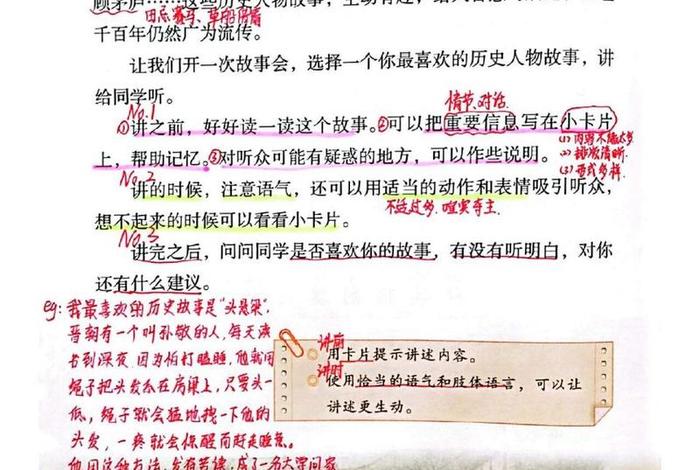 顾茅庐……这些历史人物故事，生动有趣，给人
田忌赛马、草船借箭
千百年仍然广为流传。
让我们开一次故事会，选择一个你最喜欢的历史人物故事，讲
给同学听。
No.1
情节、对话
①讲之前，好好读一读这个故事。②可以把重要信息写在小卡片
(1)内容不能太多
上，帮助记忆。③对听众可能有疑惑的地方，可以作些说明。
(2)排次清晰
(3)形式多样
No.2
讲的时候，注意语气，还可以用适当的动作和表情吸引听众，
不适过多，喧宾夺主
想不起来的时候可以看看小卡片。
No.3
讲完之后，问问同学是否喜欢你的故事，有没有听明白，对你
还有什么建议。
eg:我最喜欢的历史故事是“头悬梁”，
晋朝有一个叫孙敬的人，每天读
书到深夜，因为怕打瞌睡，他就用
绳子把头发系在房梁上，只要头一
低，绳子就会猛地拽一下他的
头发，一疼就会惊醒而赶走睡意。
他用这种方法，发奋苦读，成了一名大学问家
讲前
用卡片提示讲述内容。
讲时
使用恰当的语气和肢体语言，可以让
讲述更生动。